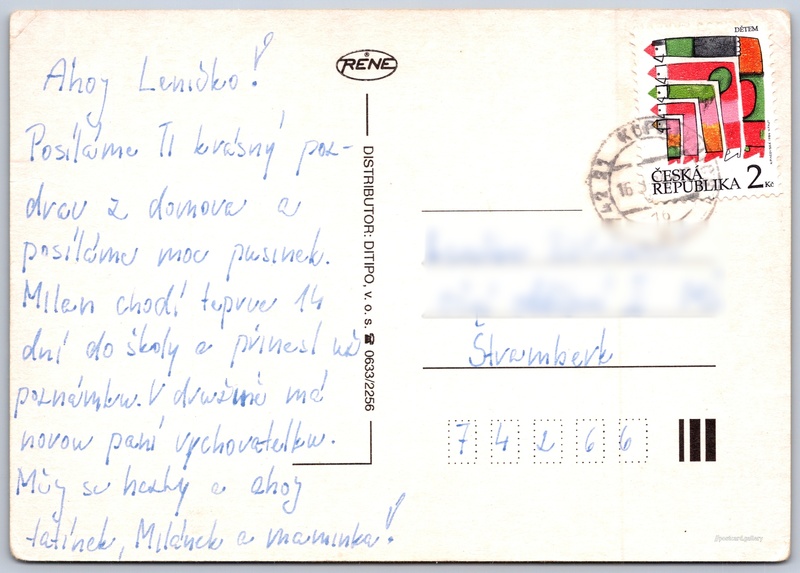 Ahoj Leničko!
Posíláme Ti krásný poz-
drav z domova a
posíláme moc pusinek.
Milan chodí teprve 14
dní do školy a přinesl už
poznámku. V družině má
novou paní vychovatelku.
Měj se hezky a ahoj
tatínek, Milánek a maminka!
RENE
DISTRIBUTOR: DITIPO, v. o. s. ☎ 0633/2256
DĚTEM
ČESKÁ
REPUBLIKA 2 Kč
742 21 KOP
16
Štramberk
7 4 2 6 6
postcard.gallery